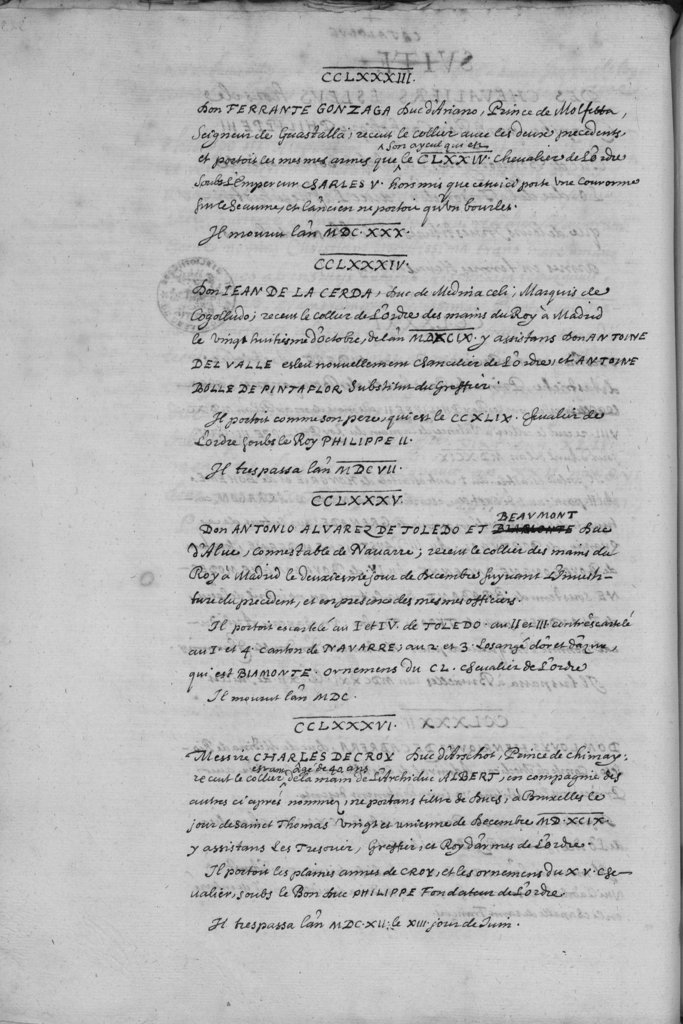 CCLXXXIII.
Don FERRANTE GONZAGA Duc d'Ariano, Prince de Molfetta,
Seigneur de Guastalla; receut le collier avec les deux precedents,
son ayeul qui est
et portoit les mesmes armes que le CLXXIV. Chevalier de L'ordre
soubs L'Empereur CHARLES V. hors mis que cettuici porte une couronne
sur le heaume, et l'ancien ne portoit qu'un bourlet.
Il mourut l'an MDC.XXX.
CCLXXXIV.
Don IEAN DE LA CERDA, Duc de Medina celi, Marquis de
Cogolludo; receut le collier de L'ordre des mains du Roy à Madrid
le vingt huitiesme d'octobre, de l'an MDXCIX. y assistans Don ANTOINE
DEL VALLE esleu nouvellement Chancilier de L'ordre, et ANTOINE
BOLLE DE PINTAFLOR Substitut du Greffier.
Il portoit comme son pere, qui est le CCXLIX. chevalier de
L'ordre soubs le Roy PHILIPPE II.
Il trespassa l'an MDCVII.
CCLXXXV.
BEAVMONT
Don ANTONIO ALVAREZ DE TOLEDO ET BIAMONTE Duc
d'Alve, connestable de Navarre; receut le collier des mains du
Roy à Madrid le deuxiesme jour de Decembre suyvant L'investi-
ture du precedent, et en presence des mesmes officiers.
Il portoit escartelé au I et IV. de TOLEDO. au II et III. contrescartelé
au I. et 4. canton de NAVARRE; au 2 et 3. Losangé d'or et d'azur,
qui est BIAMONTE. ornemens du CL. chevalier de L'ordre
Il mourut l'an MDC.
CCLXXXVI.
Messire CHARLES DE CROY Duc d'Arschot, Prince de chimay;
estant âgé de 40 ans
receut le collier de la main de L'Archiduc ALBERT, en compagnie des
autres ci aprés nommez, ne portans tiltre de Ducs, à Bruxelles le
jour de Sainct Thomas vingt et uniesme de Decembre MD.XCIX.
y assistans Les Tresorier, Greffier, et Roy d'armes de L'ordre.
Il portoit les plaines armes de CROY, et les ornemens du XV. Che-
valier, soubs le Bon duc PHILIPPE Fondateur de L'ordre.
Il trespassa l'an MDC.XII; le XIII. jour de Juin.